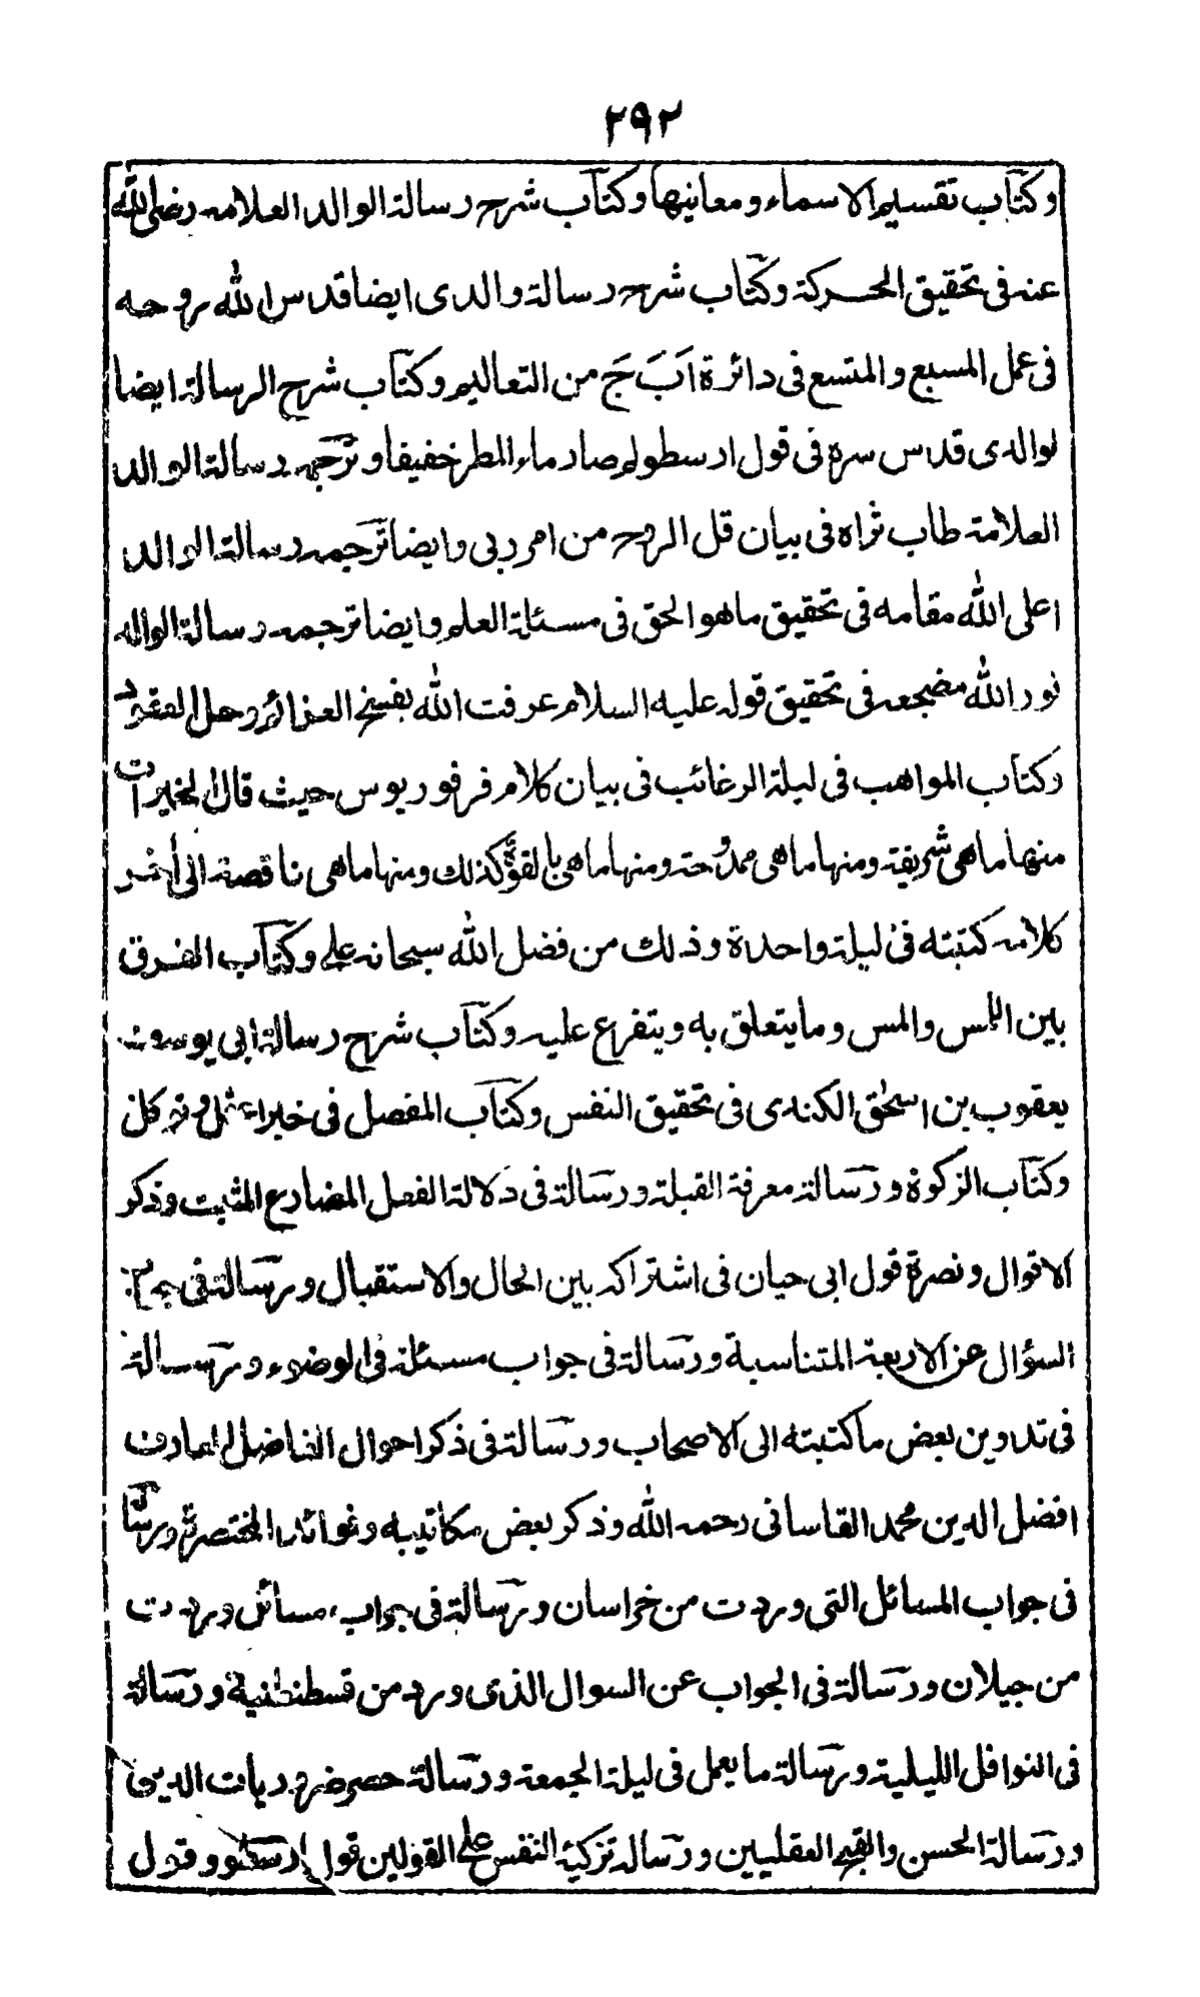 ٢٩٢
وكتاب تقسيم الاسماء ومعانيها وكتاب شرح رسالة الوالد العلامه رضى الله
عنه فى تحقيق الحركة وكتاب شرح رسالة والدى ايضا قدس الله روحه
فى عمل المسبع والمتسع فى دائرة اَبَ جَ من التعاليم وكتاب شرح الرسالة ايضا
لوالدى قدس سره فى قول ارسطو لم صار ماء المطر خفيفا وترجمه رسالة الوالد
العلامة طاب ثراه فى بيان قل الروح من امر ربى وايضا ترجمه رسالة الوالد
اعلى الله مقامه فى تحقيق ما هو الحق فى مسئلة العلم وايضا ترجمه رسالة الوالد
نور الله مضجعه فى تحقيق قوله عليه السلام عرفت الله بفسخ العزائم وحل العقود
وكتاب المواهب فى ليلة الرغائب فى بيان كلام فرفوريوس حيث قال الخيرات
منها ما هى شريفة ومنها ما هى ممدوحة ومنها ما هى بالقوة كذلك ومنها ما هى ناقصة الى أخر
كلامه كتبته فى ليلة واحدة وذلك من فضل الله سبحانه على وكتاب الفرق
بين اللمس والمس وما يتعلق به ويتفرع عليه وكتاب شرح رسالة ابى يوسف
يعقوب بن اسحق الكندى فى تحقيق النفس وكتاب المفصل فى خير اعمل وتوكل
وكتاب الزكوة ورسالة معرفة القبلة ورسالة فى دلالة الفعل المضارع المثبت وذكر
الاقوال ونصرة قول ابى حيان فى اشتراكه بين الحال والاستقبال ورسالة فى
السؤال عن الاربعة المتناسبة ورسالة فى جواب مسئلة فى الوضوء ورسالة
فى تدوين بعض ما كتبته الى الاصحاب ورسالة فى ذكر احوال الفاضل العارف
افضل الدين محمد القاسانى رحمه الله وذكر بعض مكاتيبه وفوائده المختصرة ورسالة
فى جواب المسائل التى وردت من خراسان ورسالة فى جواب مسائل وردت
من جيلان ورسالة فى الجواب عن السوال الذى ورد من قسطنطنية ورسالة
فى النوافل الليلية ورسالة ما يعمل فى ليلة الجمعة ورسالة حصر ضروريات الدين
ورسالة الحسن والقبح العقليين ورسالة تزكية النفس على القولين قول ارسطو وقول